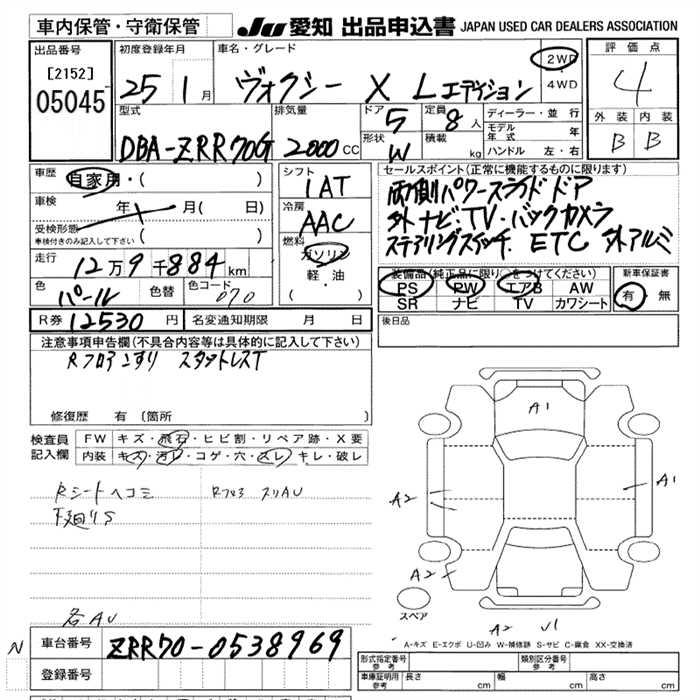 車内保管・守衛保管
JU 愛知 出品申込書 JAPAN USED CAR DEALERS ASSOCIATION
出品番号
[2152]
05045
初度登録年月
25 1月
車名・グレード
ヴォクシー X Lエディション
2WD
4WD
評価点
4
外装 内装
B B
型式
DBA-ZRR70G
排気量
2000cc
ドア
5
形状
W
定員
8人
積載
kg
ディーラー・並行
モデル年式 年
ハンドル 左・右
車歴
自家用・( )
車検
年 月( 日)
受検形態
車検付きのみ記入して下さい ( )
走行
12万9千884km
色
パール
色替
色コード
070
シフト
IAT
冷房
AAC
燃料
ガソリン
軽・油
( )
セールスポイント(正常に機能するものに限ります)
両側パワースライドドア
外ナビ・TV・バックカメラ
ステアリングスイッチ・ETC 外アルミ
装備品(純正品に限り○をつけてください)
PS PW エアB AW
SR ナビ TV カワシート
新車保証書
有・無
R券 12530円
名変通知期限 月 日
後日品
注意事項申告欄(不具合内容等は具体的に記入して下さい)
Rフロアこすり スタットレスT
修復歴 有(箇所
検査員記入欄
FW キズ・飛石・ヒビ割・リペア跡・X要
内装 キズ・汚レ・コゲ・穴・スレ・キレ・破レ
Rシートヘコミ Rフロア スリAU
下廻りS
各AU
A1
A2
A1
A2
スペア
A2 U1
A-キズ E-エクボ U-凹み W-補修跡 S-サビ C-腐食 XX-交換済
N
車台番号 ZRR70-0538969
登録番号
形式指定番号 参考
類別区分番号 参考
車庫証明用 参考 長さ cm 幅 cm 高さ cm